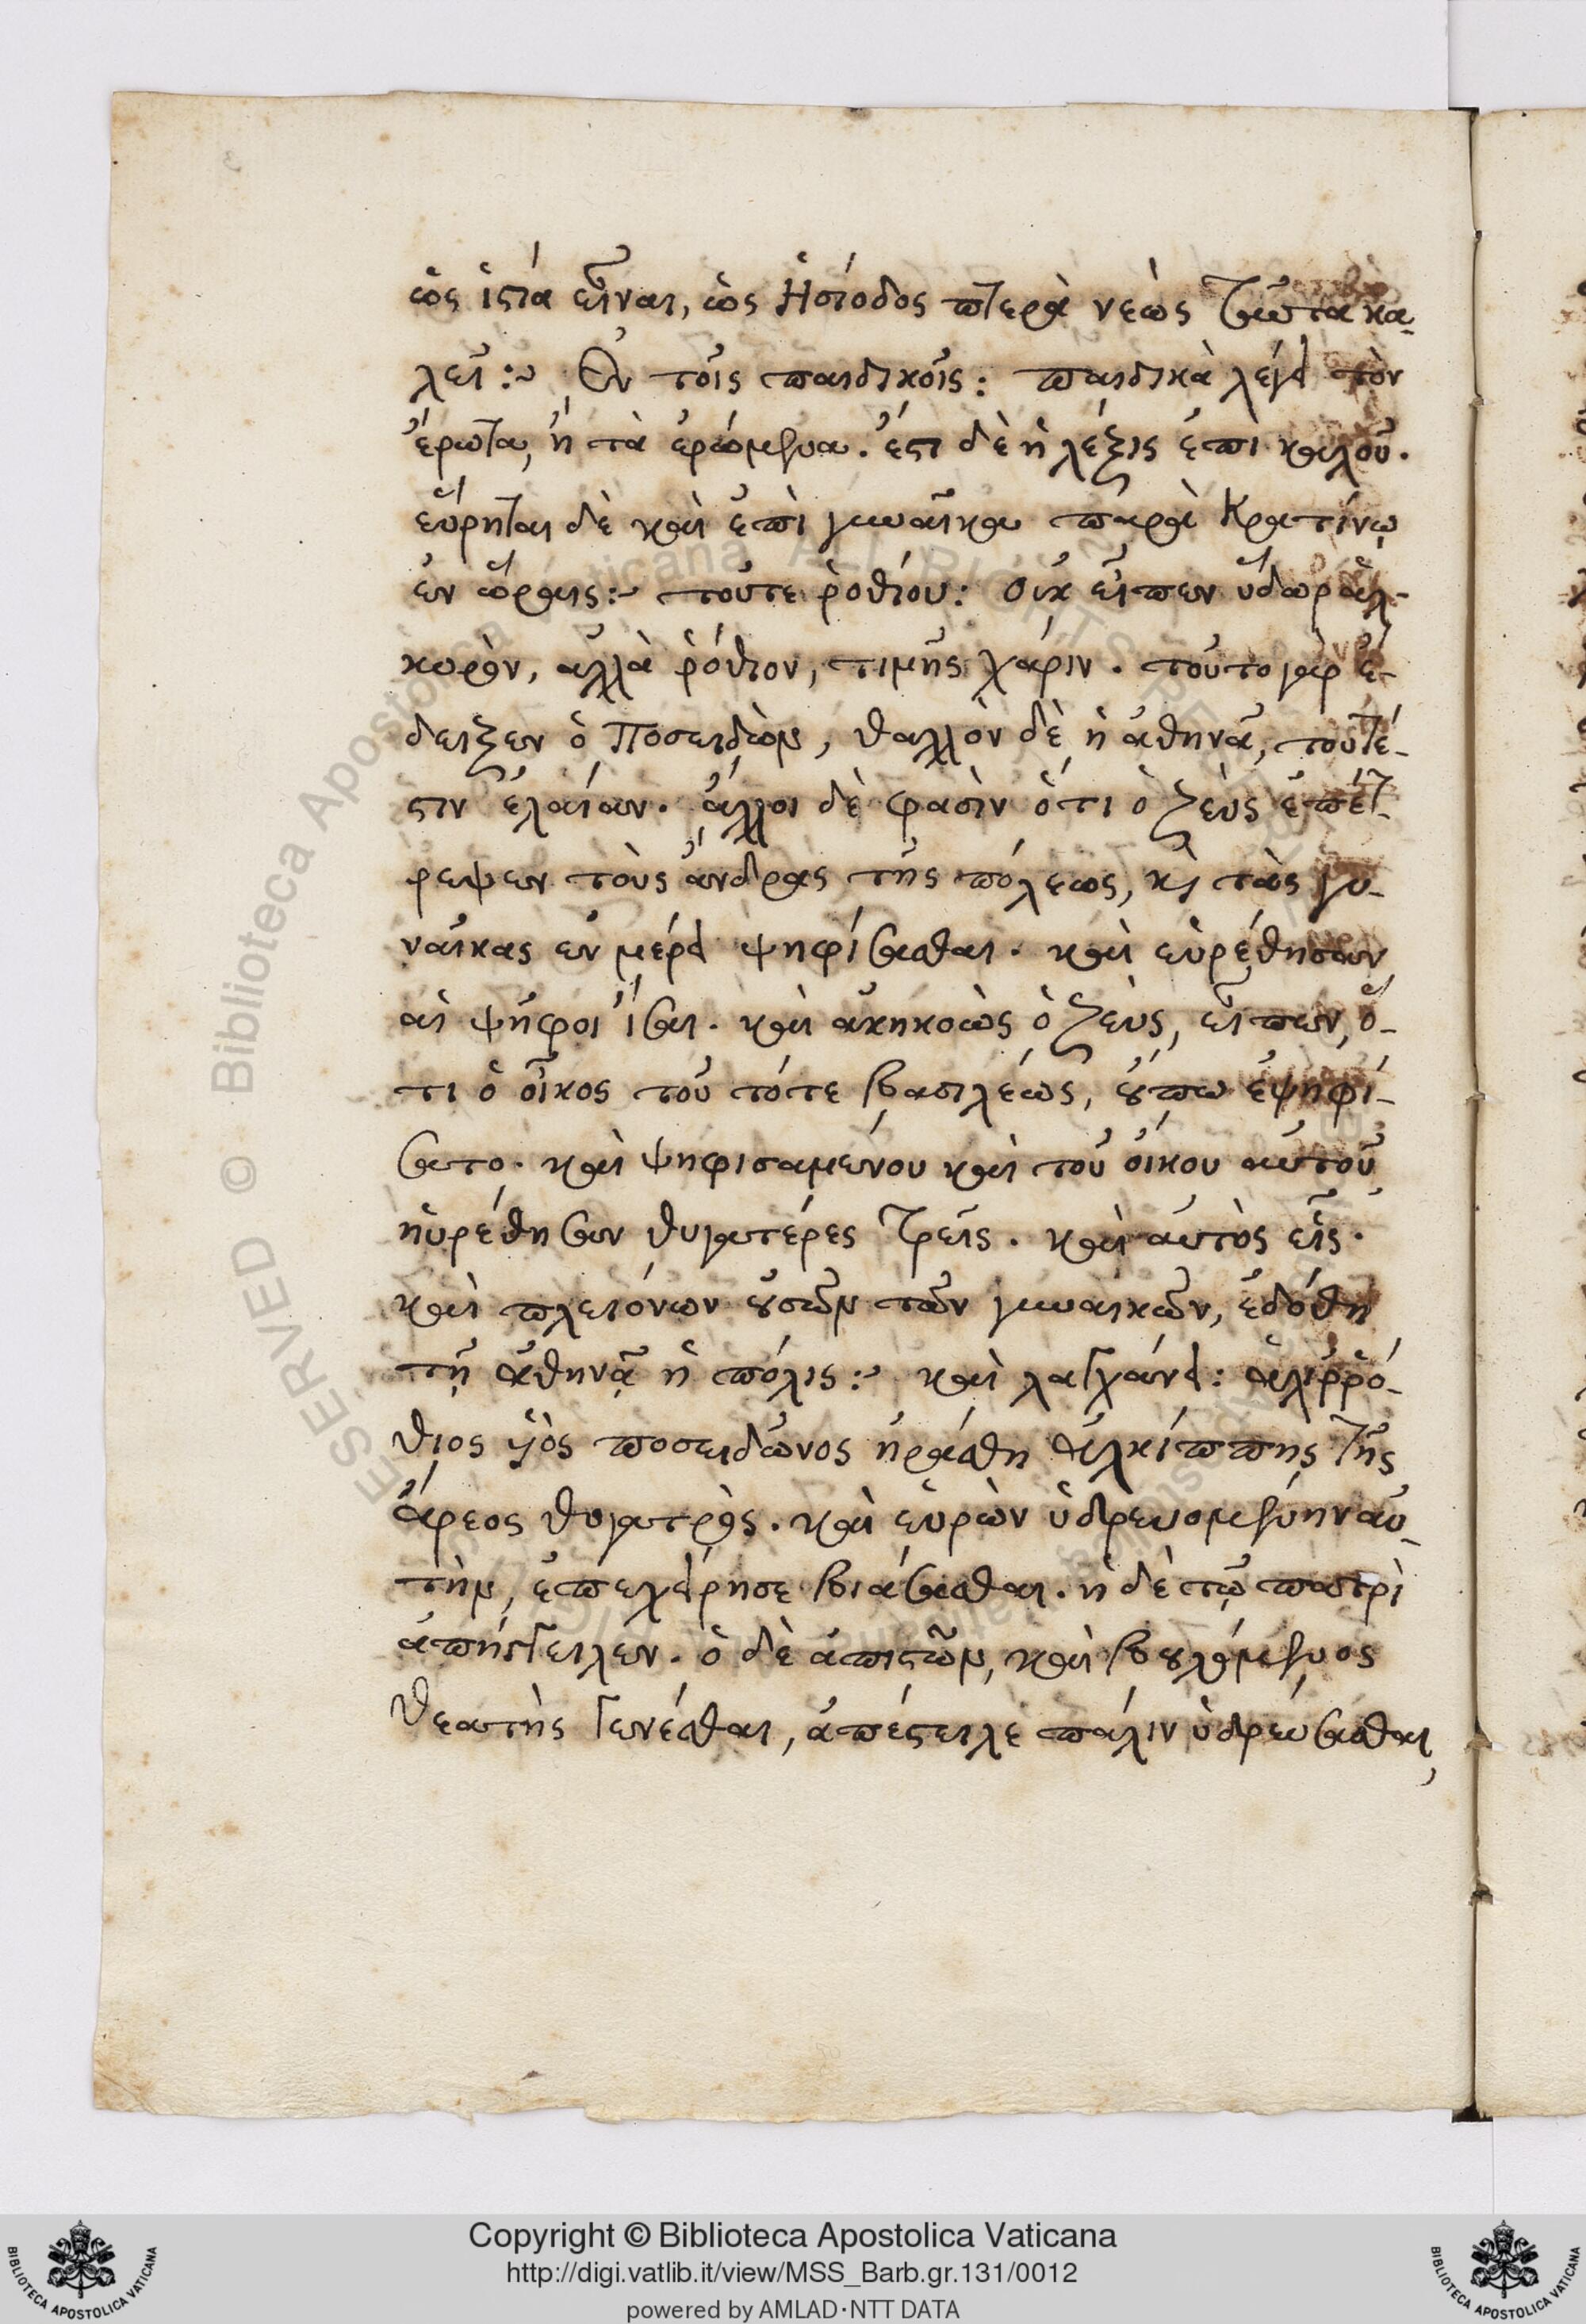 ὡς ἱστία εἶναι, ὡς Ἡσίοδος πτερὰ νεὼς ταῦτα κα-
λεῖ: Ἐν τοῖς παιδικοῖς: παιδικὰ λέγει τὸν
ἔρωτα, ἢ τὰ ἐρώμενα. ἔστι δὲ ἡ λέξις ἐπὶ καλοῦ.
εὕρηται δὲ καὶ ἐπὶ γυναῖκα παρὰ Κρατίνῳ
ἐν ὥραις: τοῦτε ῥοθίου: οὐκ εἶπεν ὕδωρ ἁλ-
κυρὸν, ἀλλὰ ῥόθιον, τιμῆς χάριν. τοῦτο γὰρ ἔ-
δειξεν ὁ Ποσειδὼν, θαλλὸν δὲ ἡ ἀθηνᾶ, τουτέ-
στιν ἐλαίαν. ἄλλοι δὲ φασὶν ὅτι ὁ ζεὺς ἐπέτ-
ρεψεν τοὺς ἄνδρας τῆς πόλεως, κὶ τὰς γυ-
ναῖκας ἐν μέρει ψηφίσασθαι. καὶ εὑρέθησαν
αἱ ψῆφοι ἴσαι. καὶ ἀκηκοὼς ὁ ζεὺς, εἶπεν, ὅ-
τι ὁ οἶκος τοῦ τότε βασιλέως, οὔπω ἐψηφί-
σατο. καὶ ψηφισαμένου καὶ τοῦ οἴκου αὐτοῦ
ηὑρέθησαν θυγατέρες τρεῖς. καὶ αὐτὸς εἷς.
καὶ πλειόνων οὐσῶν τῶν γυναικῶν, ἐδόθη
τῇ ἀθηνᾷ ἡ πόλις: καὶ λαγχάνει: ἁλιρρό-
θιος υἱὸς ποσειδῶνος ἠράσθη ἀλκίππης τῆς
ἄρεος θυγατρὸς. καὶ εὑρὼν ὑδρευομένην αὐ-
τὴν, ἐπεχείρησε βιάσασθαι. ἡ δὲ τῷ πατρὶ
ἀπήγγειλεν. ὁ δὲ ἀπιστῶν, καὶ βουλόμενος
θεατὴς γενέσθαι, ἀπέστειλε πάλιν ὑδρεύσασθαι,
Copyright © Biblioteca Apostolica Vaticana
http://digi.vatlib.it/view/MSS_Barb.gr.131/0012
powered by AMLAD·NTT DATA